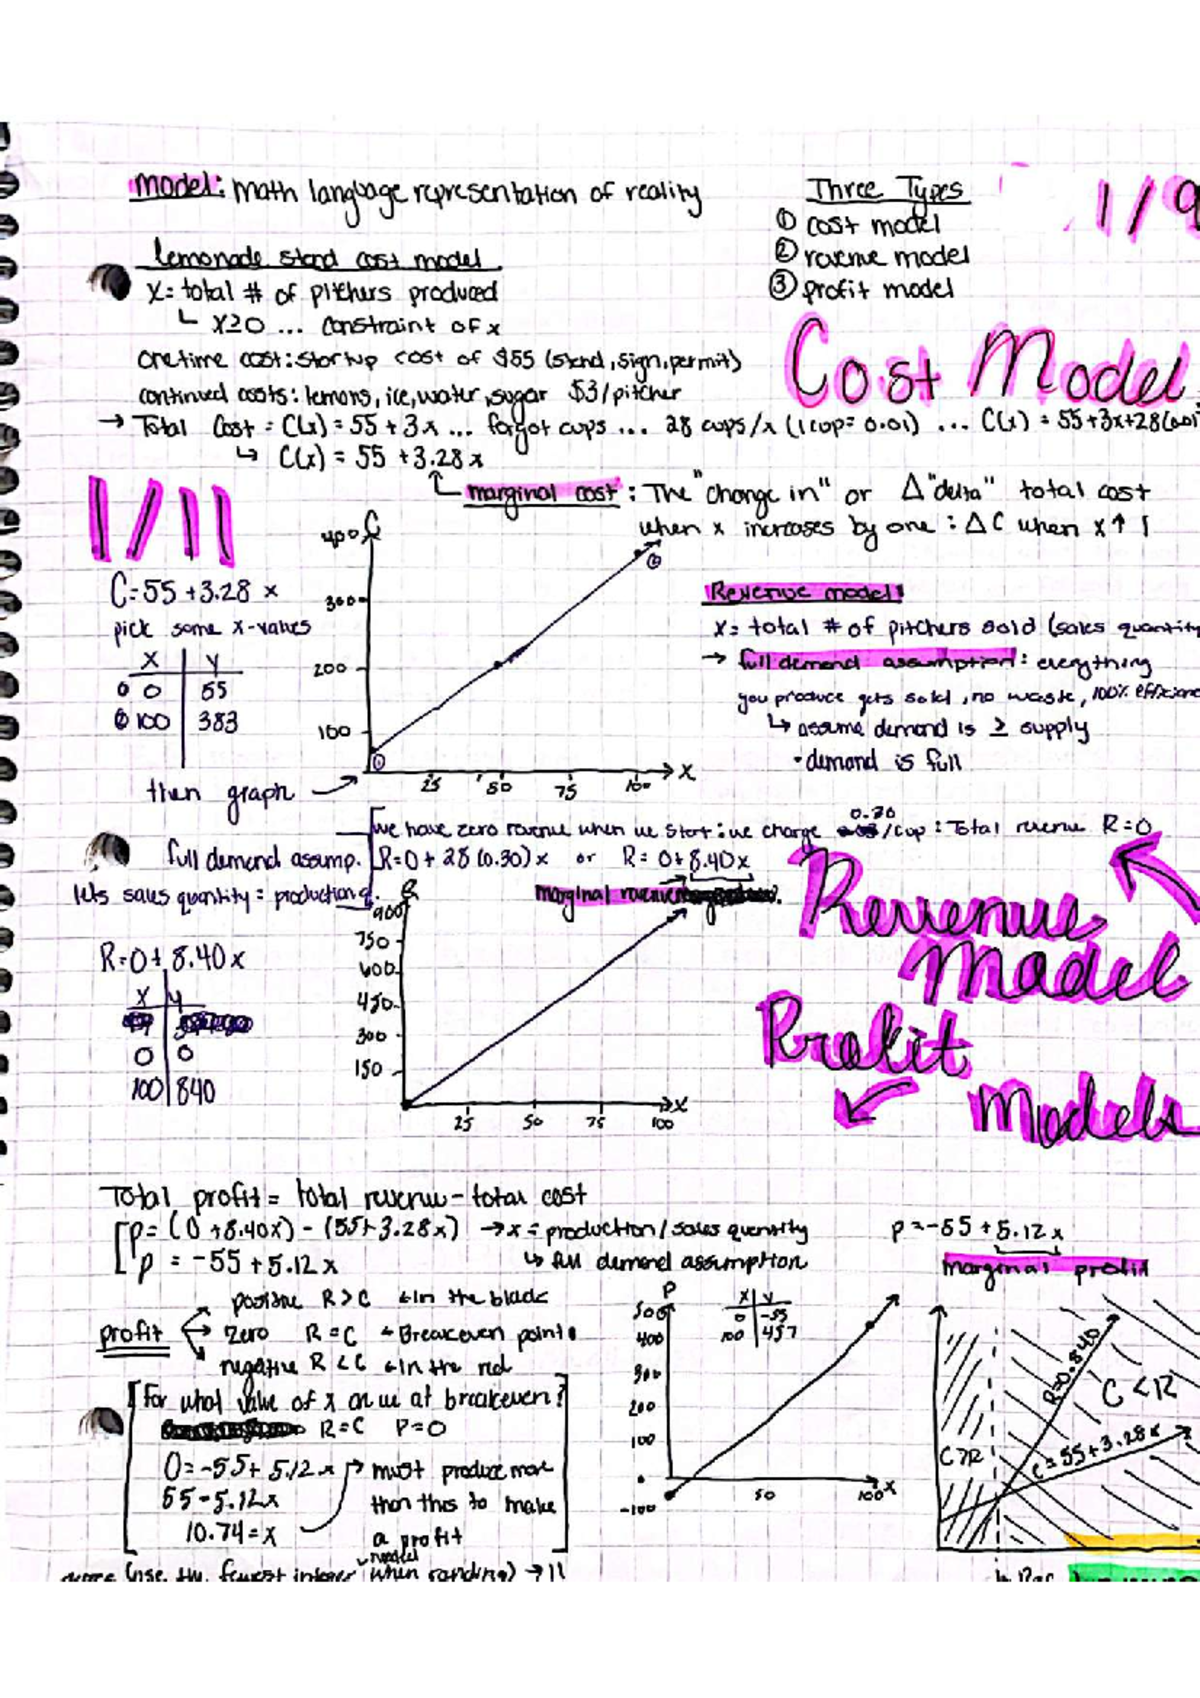 model: math language representation of reality
Three Types
① cost model
② revenue model
③ profit model
1/9
lemonade stand cost model
x = total # of pitchers produced
↳ x≥0 ... constraint of x
Cost Model
onetime cost: startup cost of $55 (stand, sign, permit)
continued costs: lemons, ice, water, sugar $3/pitcher
→ Total Cost = C(x) = 55 + 3x ... forgot cups ... 28 cups/x (1 cup = 0.01) ... C(x) = 55+3x+28(0.01
↳ C(x) = 55 + 3.28x
marginal cost: The "change in" or Δ "delta" total cost
when x increases by one: ΔC when x↑ 1
1/11
C=55+3.28x
pick some x-values
x y
① 0 55
② 100 383
then graph →
C
400
300
200
100
① ②
25 50 75 100 x
Revenue model:
x= total # of pitchers sold (sales quantity
→ full demand assumption: everything
you produce gets sold, no waste, 100%
↳ assume demand is ≥ supply
• demand is full
we have zero revenue when we start: we charge 0.30/cup: Total revenue R=0
full demand assump. R=0 + 28(0.30)x or R= 0+8.40x
lets sales quantity = production q.
marginal revenue
Revenue
Model
R=0+8.40x
x y
0 0
100 840
R
900
750
600
450
300
150
25 50 75 100 x
Profit
Models
Total profit = total revenue - total cost
p= (0+8.40x) - (55+3.28x) → x = production/sales quantity
p = -55 + 5.12x ↳ full demand assumption
p=-55+5.12x
marginal profit
profit
positive R>C ←in the black
zero R=C ←Breakeven point
negative R<C ←in the red
For what value of x are we at breakeven?
R=C P=0
0=-55+5.12x → must produce more
55=5.12x than this to make
10.74=x a profit
P
500
400
300
200
100
0
-100
50 100 x
x y
0 -55
100 457
R=0.840
C<R
C>R
C=55+3.28x
(use the fewest integer when rounding) → 11